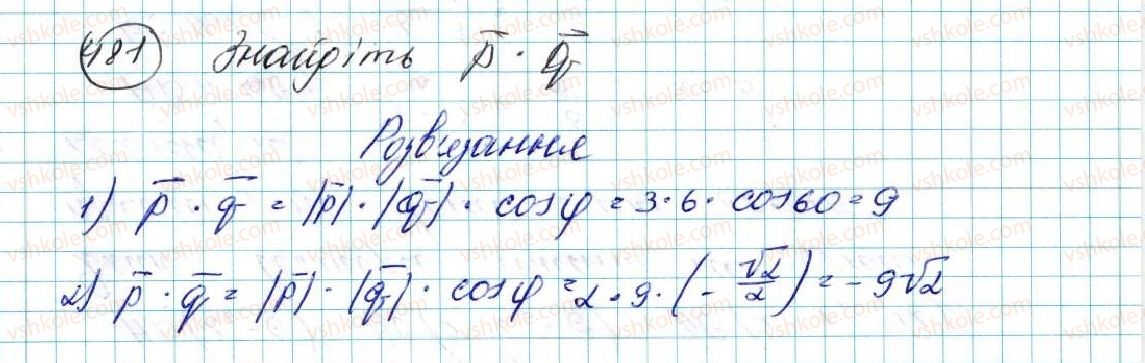 481 Знайдіть p̅ · q̅
Розв'язання
1) p̅ · q̅ = |p̅| · |q̅| · cosφ = 3 · 6 · cos60 = 9
2) p̅ · q̅ = |p̅| · |q̅| · cosφ = 2 · 9 · (- √2/2) = - 9√2